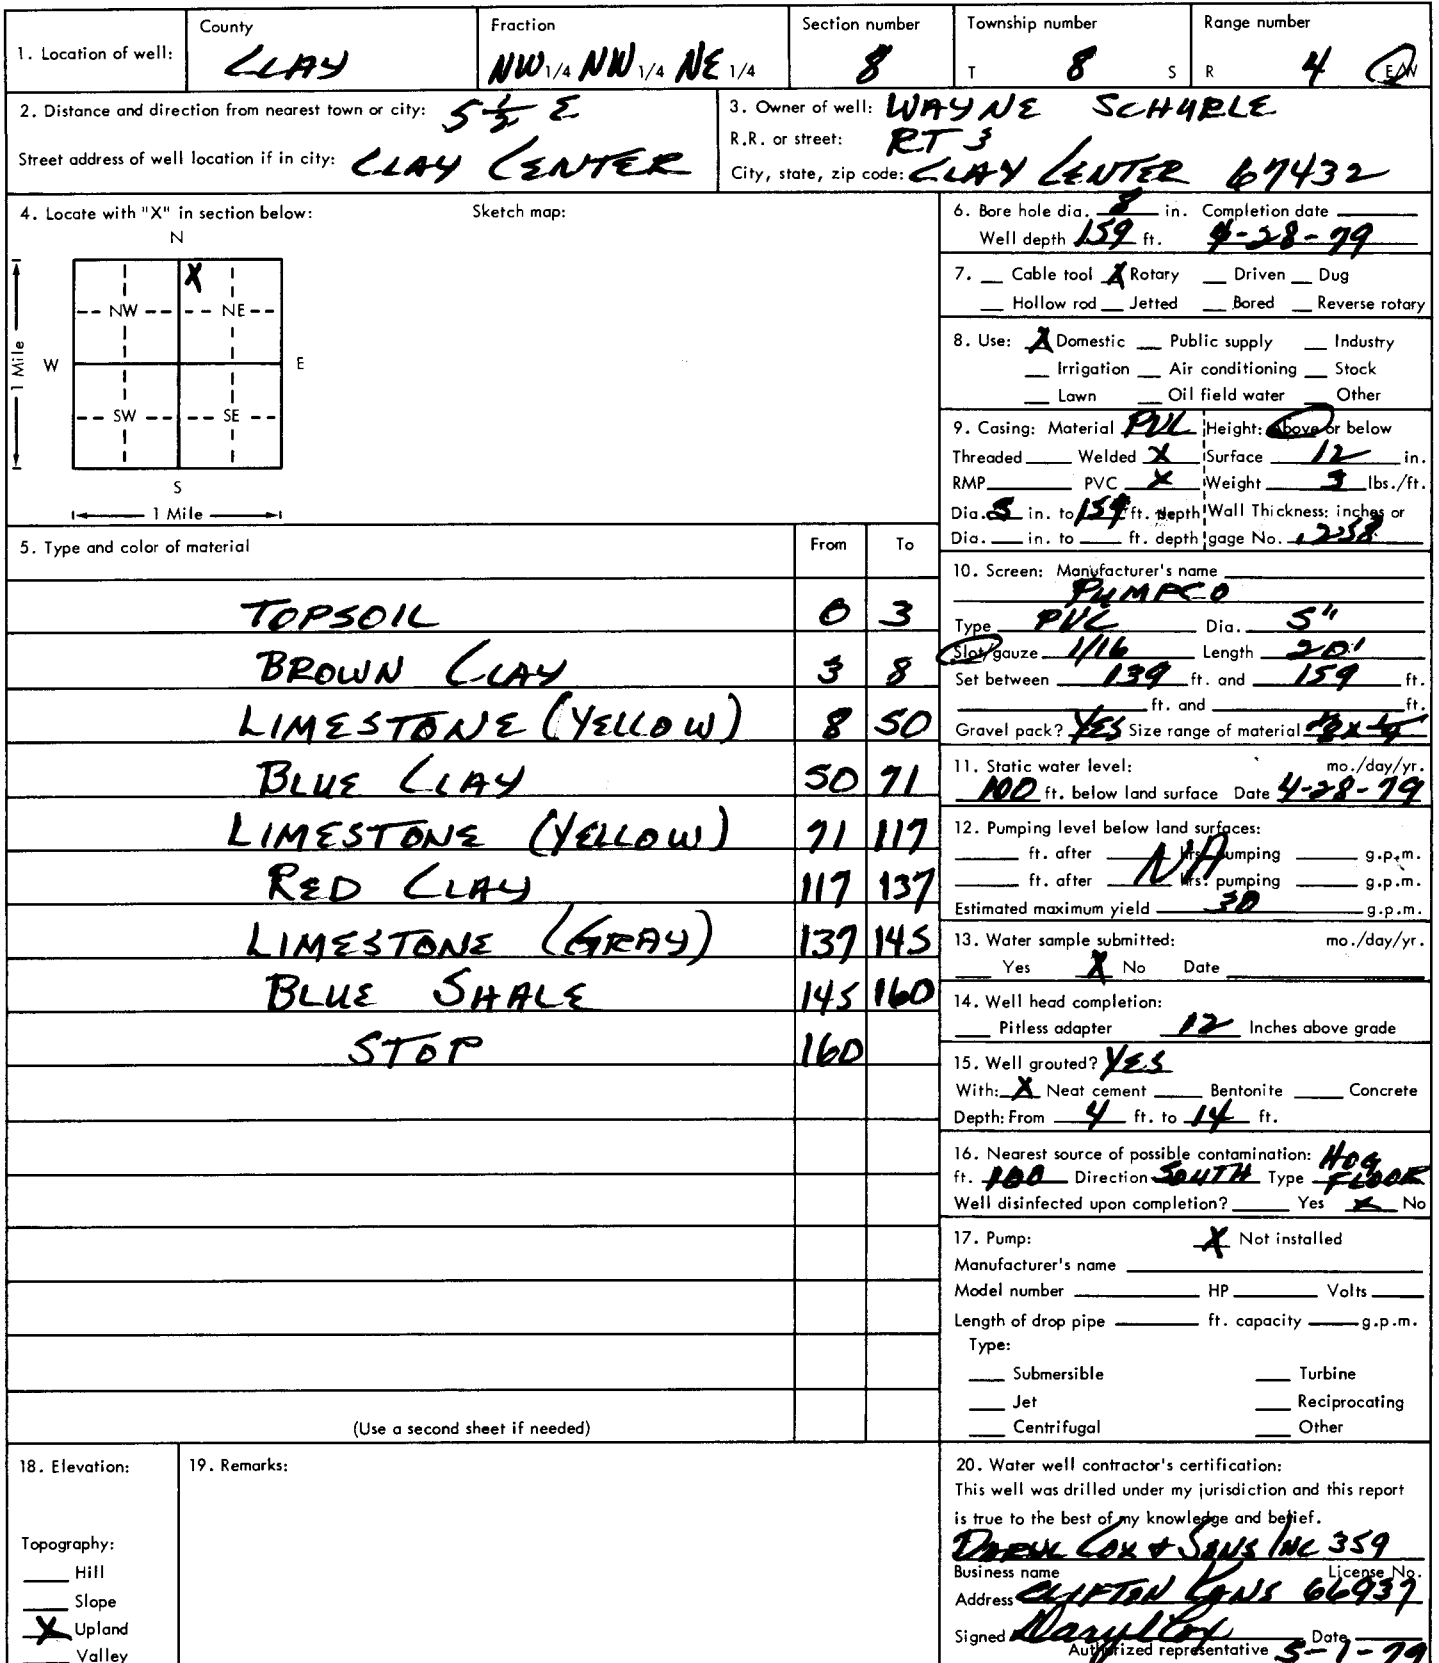 County Fraction Section number Township number Range number
1. Location of well: CLAY NW 1/4 NW 1/4 NE 1/4 8 T 8 S R 4 E/W
2. Distance and direction from nearest town or city: 5 1/2 E
Street address of well location if in city: CLAY CENTER
3. Owner of well: WAYNE SCHURLE
R.R. or street: RT 3
City, state, zip code: CLAY CENTER 67432
4. Locate with "X" in section below: Sketch map:
N
X
NW NE
W E
1 Mile
SW SE
S
1 Mile
5. Type and color of material From To
TOPSOIL 0 3
BROWN CLAY 3 8
LIMESTONE (YELLOW) 8 50
BLUE CLAY 50 71
LIMESTONE (YELLOW) 71 117
RED CLAY 117 137
LIMESTONE (GRAY) 137 145
BLUE SHALE 145 160
STOP 160
(Use a second sheet if needed)
6. Bore hole dia. 8 in. Completion date
Well depth 159 ft. 4-28-79
7. Cable tool X Rotary Driven Dug
Hollow rod Jetted Bored Reverse rotary
8. Use: X Domestic Public supply Industry
Irrigation Air conditioning Stock
Lawn Oil field water Other
9. Casing: Material PVC Height: Above or below
Threaded Welded X Surface 12 in.
RMP PVC X Weight 3 lbs./ft.
Dia. 5 in. to 159 ft. depth Wall Thickness: inches or
Dia. in. to ft. depth gage No. .258
10. Screen: Manufacturer's name
PUMPCO
Type PVC Dia. 5"
Slot/gauze 1/16 Length 20'
Set between 139 ft. and 159 ft.
ft. and ft.
Gravel pack? YES Size range of material
11. Static water level: mo./day/yr.
100 ft. below land surface Date 4-28-79
12. Pumping level below land surfaces:
ft. after hrs. pumping g.p.m.
NA
ft. after hrs. pumping g.p.m.
Estimated maximum yield 30 g.p.m.
13. Water sample submitted: mo./day/yr.
Yes X No Date
14. Well head completion:
Pitless adapter 12 Inches above grade
15. Well grouted? YES
With: X Neat cement Bentonite Concrete
Depth: From 4 ft. to 14 ft.
16. Nearest source of possible contamination: HOG
ft. 100 Direction SOUTH Type FLOOR
Well disinfected upon completion? Yes X No
17. Pump: X Not installed
Manufacturer's name
Model number HP Volts
Length of drop pipe ft. capacity g.p.m.
Type:
Submersible Turbine
Jet Reciprocating
Centrifugal Other
18. Elevation:
Topography:
Hill
Slope
X Upland
Valley
19. Remarks:
20. Water well contractor's certification:
This well was drilled under my jurisdiction and this report
is true to the best of my knowledge and belief.
DARYL COX & SONS INC 359
Business name License No.
Address CLIFTON KANS 66937
Signed Daryl Cox Date
Authorized representative 5-1-79